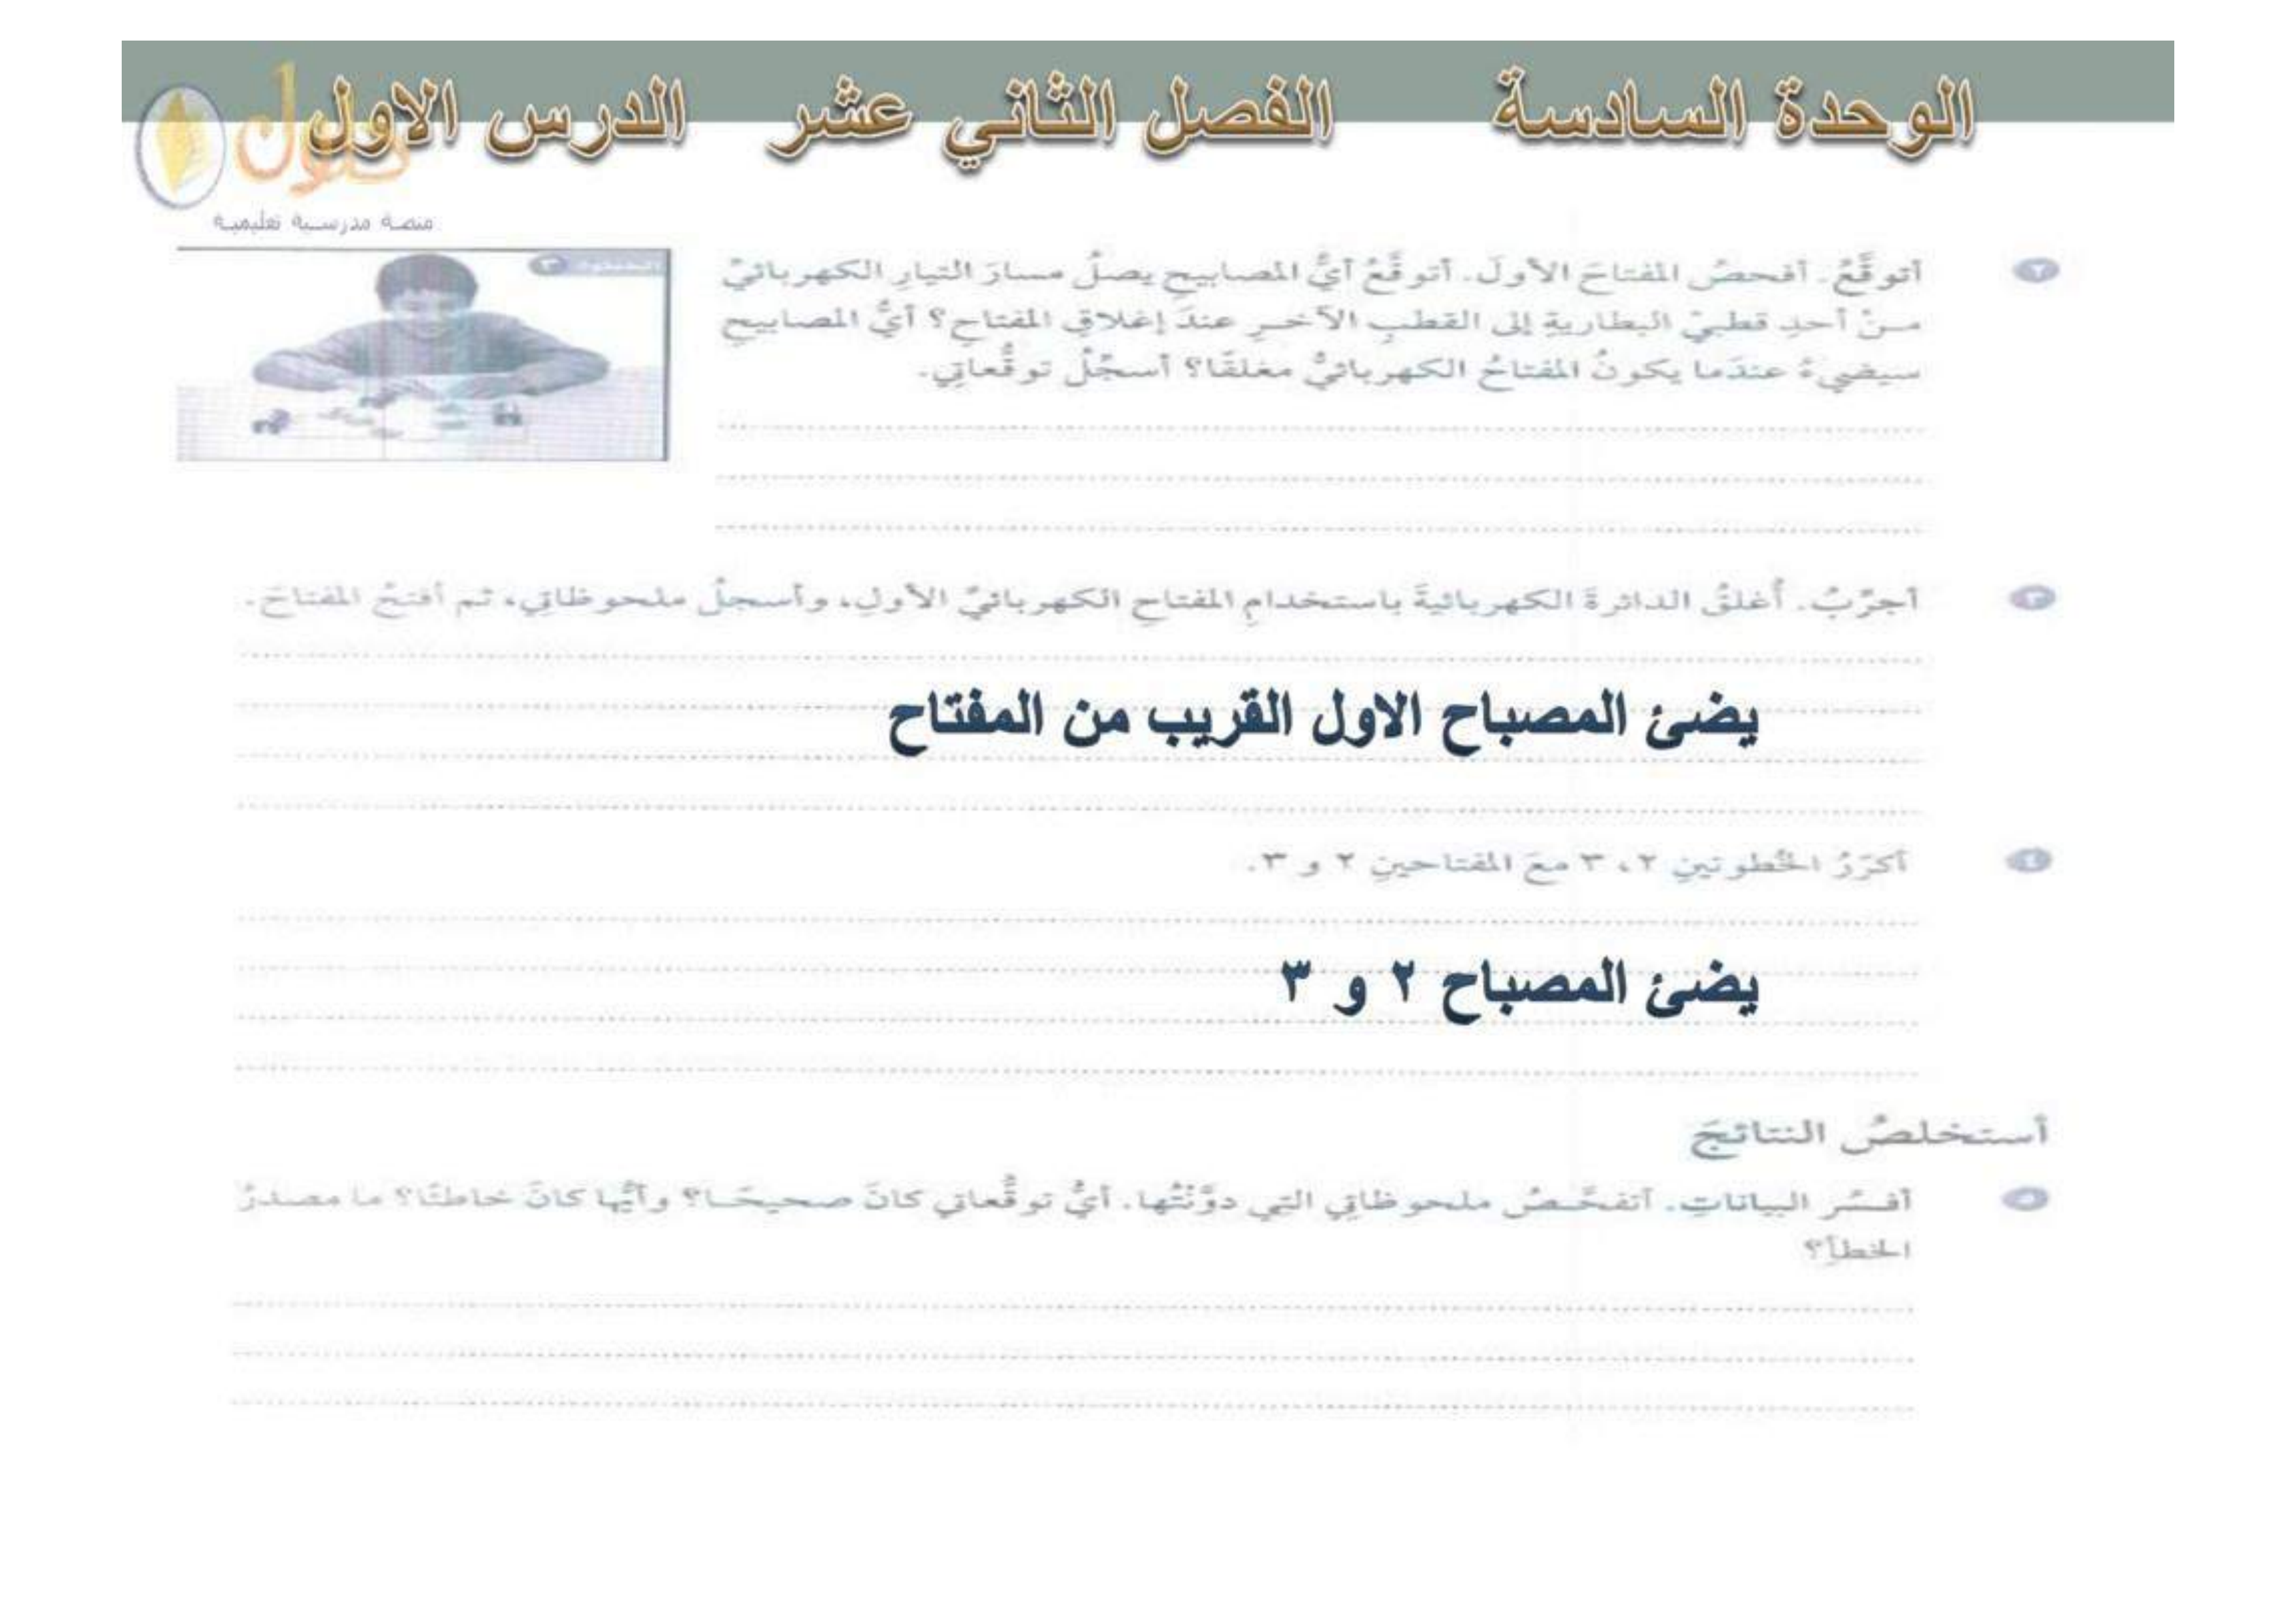 الوحدة السادسة الفصل الثاني عشر الدرس الاول
حلول
منصة مدرسية تعليمية
٢ أتوقَّعُ. أفحصُ المفتاحَ الأولَ. أتوقَّعُ أيُّ المصابيحِ يصلُ مسارَ التيارِ الكهربائيِّ
منْ أحدِ قطبيِّ البطاريةِ إلى القطبِ الآخرِ عندَ إغلاقِ المفتاحِ؟ أيُّ المصابيحِ
سيضيءُ عندَما يكونُ المفتاحُ الكهربائيُّ مغلقًا؟ أسجِّلُ توقُّعاتِي.
٣ أجرِّبُ. أُغلقُ الدائرةَ الكهربائيةَ باستخدامِ المفتاحِ الكهربائيِّ الأولِ، وأسجلُ ملحوظاتِي، ثم أفتحُ المفتاحَ.
يضئ المصباح الاول القريب من المفتاح
٤ أكرِّرُ الخُطوتينِ ٢، ٣ معَ المفتاحينِ ٢ و ٣.
يضئ المصباح ٢ و ٣
أستخلصُ النتائجَ
٥ أفسِّر البياناتِ. أتفحَّصُ ملحوظاتِي التي دوَّنْتُها. أيُّ توقُّعاتي كانَ صحيحًا؟ وأيُّها كانَ خاطئًا؟ ما مصدرُ
الخطأِ؟